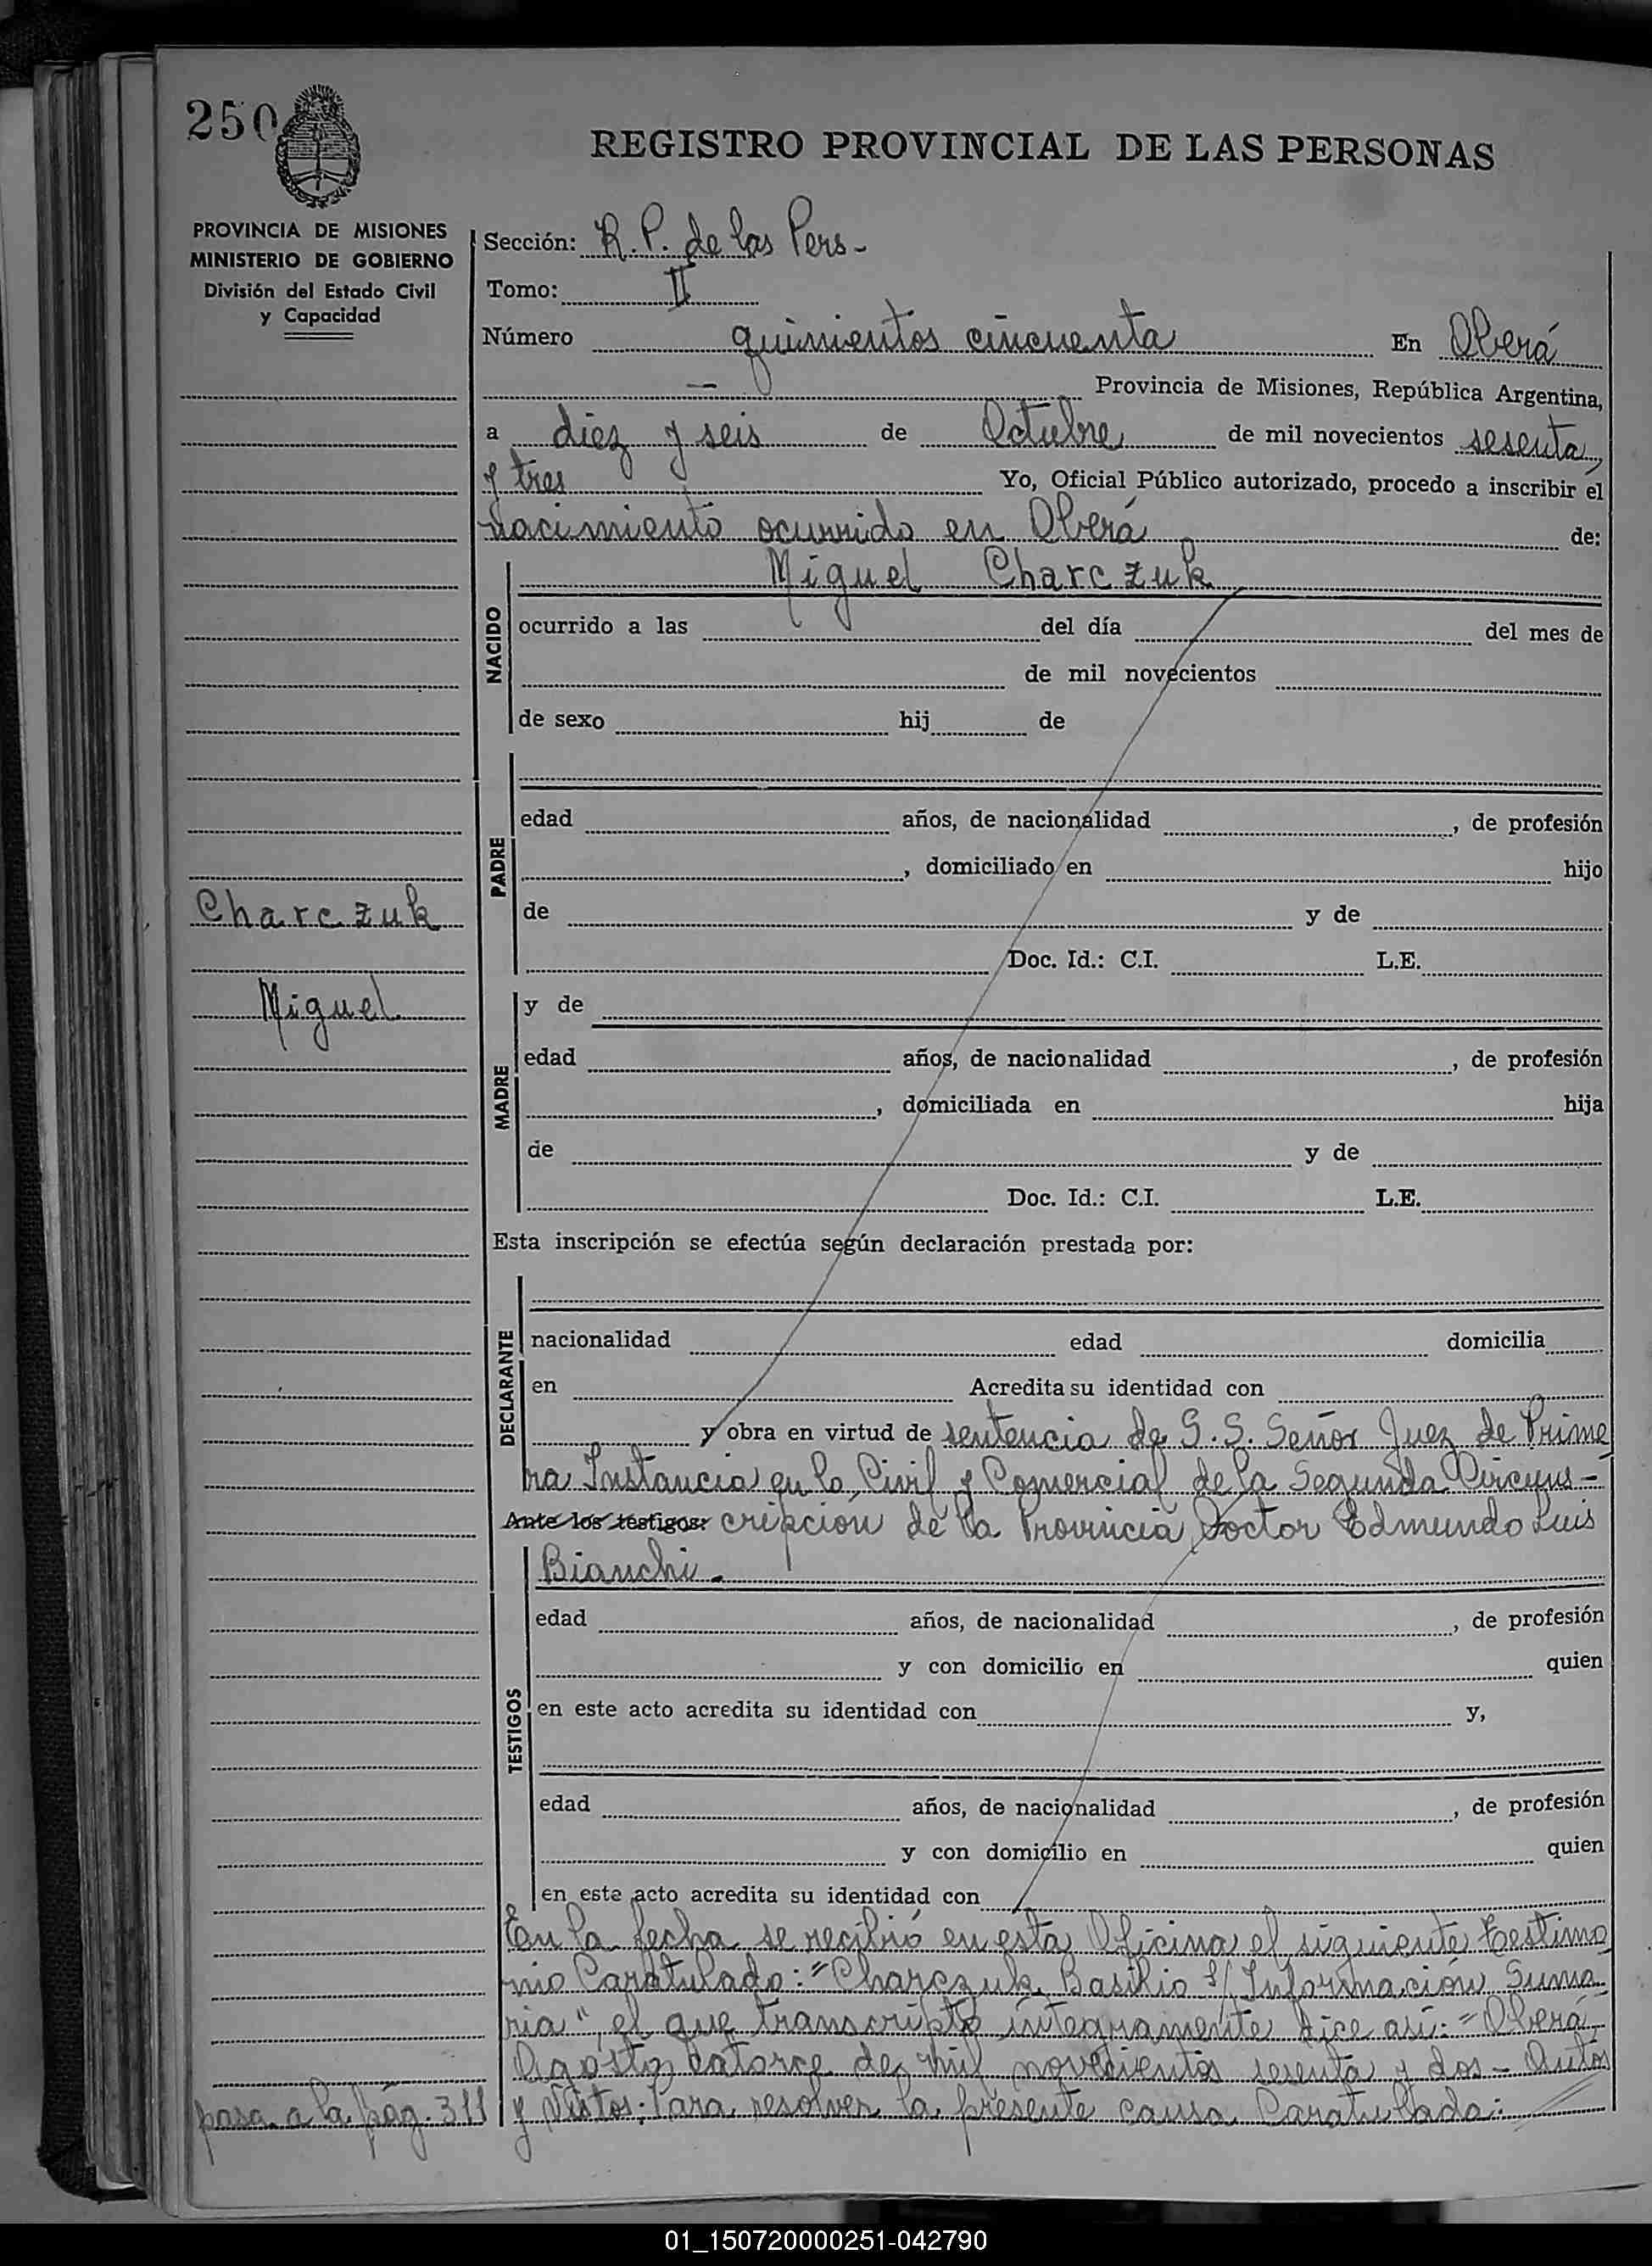 250
REGISTRO PROVINCIAL DE LAS PERSONAS
PROVINCIA DE MISIONES
MINISTERIO DE GOBIERNO
División del Estado Civil
y Capacidad
Sección: R. P. de las Pers -
Tomo: II
Número quinientos cincuenta En Oberá
— Provincia de Misiones, República Argentina,
a diez y seis de Octubre de mil novecientos sesenta,
y tres Yo, Oficial Público autorizado, procedo a inscribir el
nacimiento ocurrido en Oberá de:
Miguel Charczuk
NACIDO
ocurrido a las del día del mes de
de mil novecientos
de sexo hij de
PADRE
edad años, de nacionalidad , de profesión
, domiciliado en hijo
Charczuk
de y de
Doc. Id.: C.I. L.E.
Miguel
MADRE
y de
edad años, de nacionalidad , de profesión
, domiciliada en hija
de y de
Doc. Id.: C.I. L.E.
Esta inscripción se efectúa según declaración prestada por:
DECLARANTE
nacionalidad edad domicilia
en Acredita su identidad con
y obra en virtud de sentencia de S. S. Señor Juez de Prime
ra Instancia en lo Civil y Comercial de la Segunda Circuns-
Ante los testigos: cripcion de la Provincia Doctor Edmundo Luis
Bianchi.
TESTIGOS
edad años, de nacionalidad , de profesión
y con domicilio en quien
en este acto acredita su identidad con y,
edad años, de nacionalidad , de profesión
y con domicilio en quien
en este acto acredita su identidad con
En la fecha se recibió en esta Oficina el siguiente Testimo
nio Caratulado: "Charczuk Basilio s/ Información Suma
ria", el que transcripto íntegramente dice así: "Oberá,
Agosto catorce de mil novecientos sesenta y dos - Autos
y Vistos: Para resolver la presente causa Caratulada:
pasa a la pág. 311
01_150720000251-042790